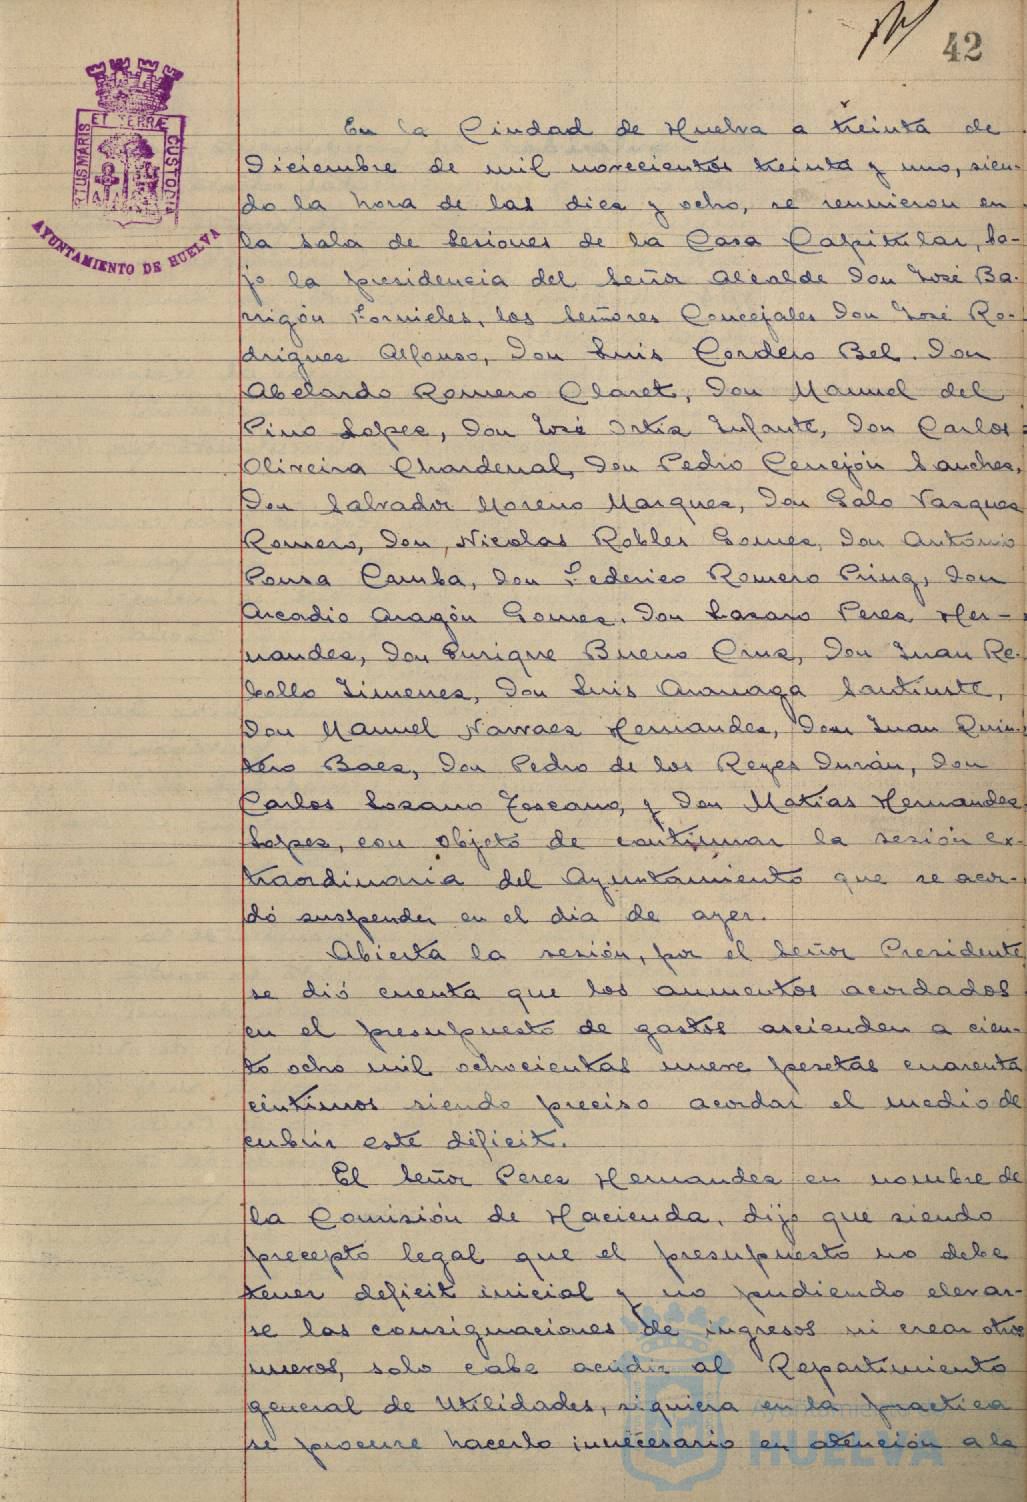 42
PORTUS MARIS ET TERRÆ CUSTODIA
AYUNTAMIENTO DE HUELVA
En la Ciudad de Huelva a treinta de
Diciembre de mil novecientos treinta y uno, sien-
do la hora de las diez y ocho, se reunieron en
la Sala de Sesiones de la Casa Capitular, ba-
jo la presidencia del Señor Alcalde Don José Ba-
rrigón Fornieles, los Señores Concejales Don José Ro-
driguez Alfonso, Don Luis Cordero Bel. Don
Abelardo Romero Claret, Don Manuel del
Pino Lopez, Don José Ortiz Infante, Don Carlos
Oliveira Chardenal, Don Pedro Cerrejón Sanchez,
Don Salvador Moreno Marquez, Don Galo Vazquez
Romero, Don Nicolas Robles Gomez, Don Antonio
Pousa Camba, Don Federico Romero Piug, Don
Arcadio Aragón Gomez. Don Lazaro Perez Her-
nandez, Don Enrique Bueno Cruz, Don Juan Re-
bollo Jimenez, Don Luis Aranaga Santiuste,
Don Manuel Narvaez Hernandez, Don Juan Quin-
tero Baez, Don Pedro de los Reyes Durán, Don
Carlos Lozano Toscano, y Don Matias Hernandez
Lopez, con objeto de continuar la sesión ex-
traordinaria del Ayuntamiento que se acor-
dó suspender en el dia de ayer.
Abierta la sesión, por el Señor Presidente
se dió cuenta que los aumentos acordados
en el presupuesto de gastos ascienden a cien-
to ocho mil ochocientas nueve pesetas cuarenta
céntimos siendo preciso acordar el medio de
cubrir este déficit.
El Señor Perez Hernandez en nombre de
la Comisión de Hacienda, dijo que siendo
precepto legal que el presupuesto no debe
tener deficit inicial y no pudiendo elevar-
se las consignaciones de ingresos ni crear otros
nuevos, solo cabe acudir al Repartimiento
general de Utilidades, siquiera en la practica
se procure hacerlo innecesario en atención a la
HUELVA